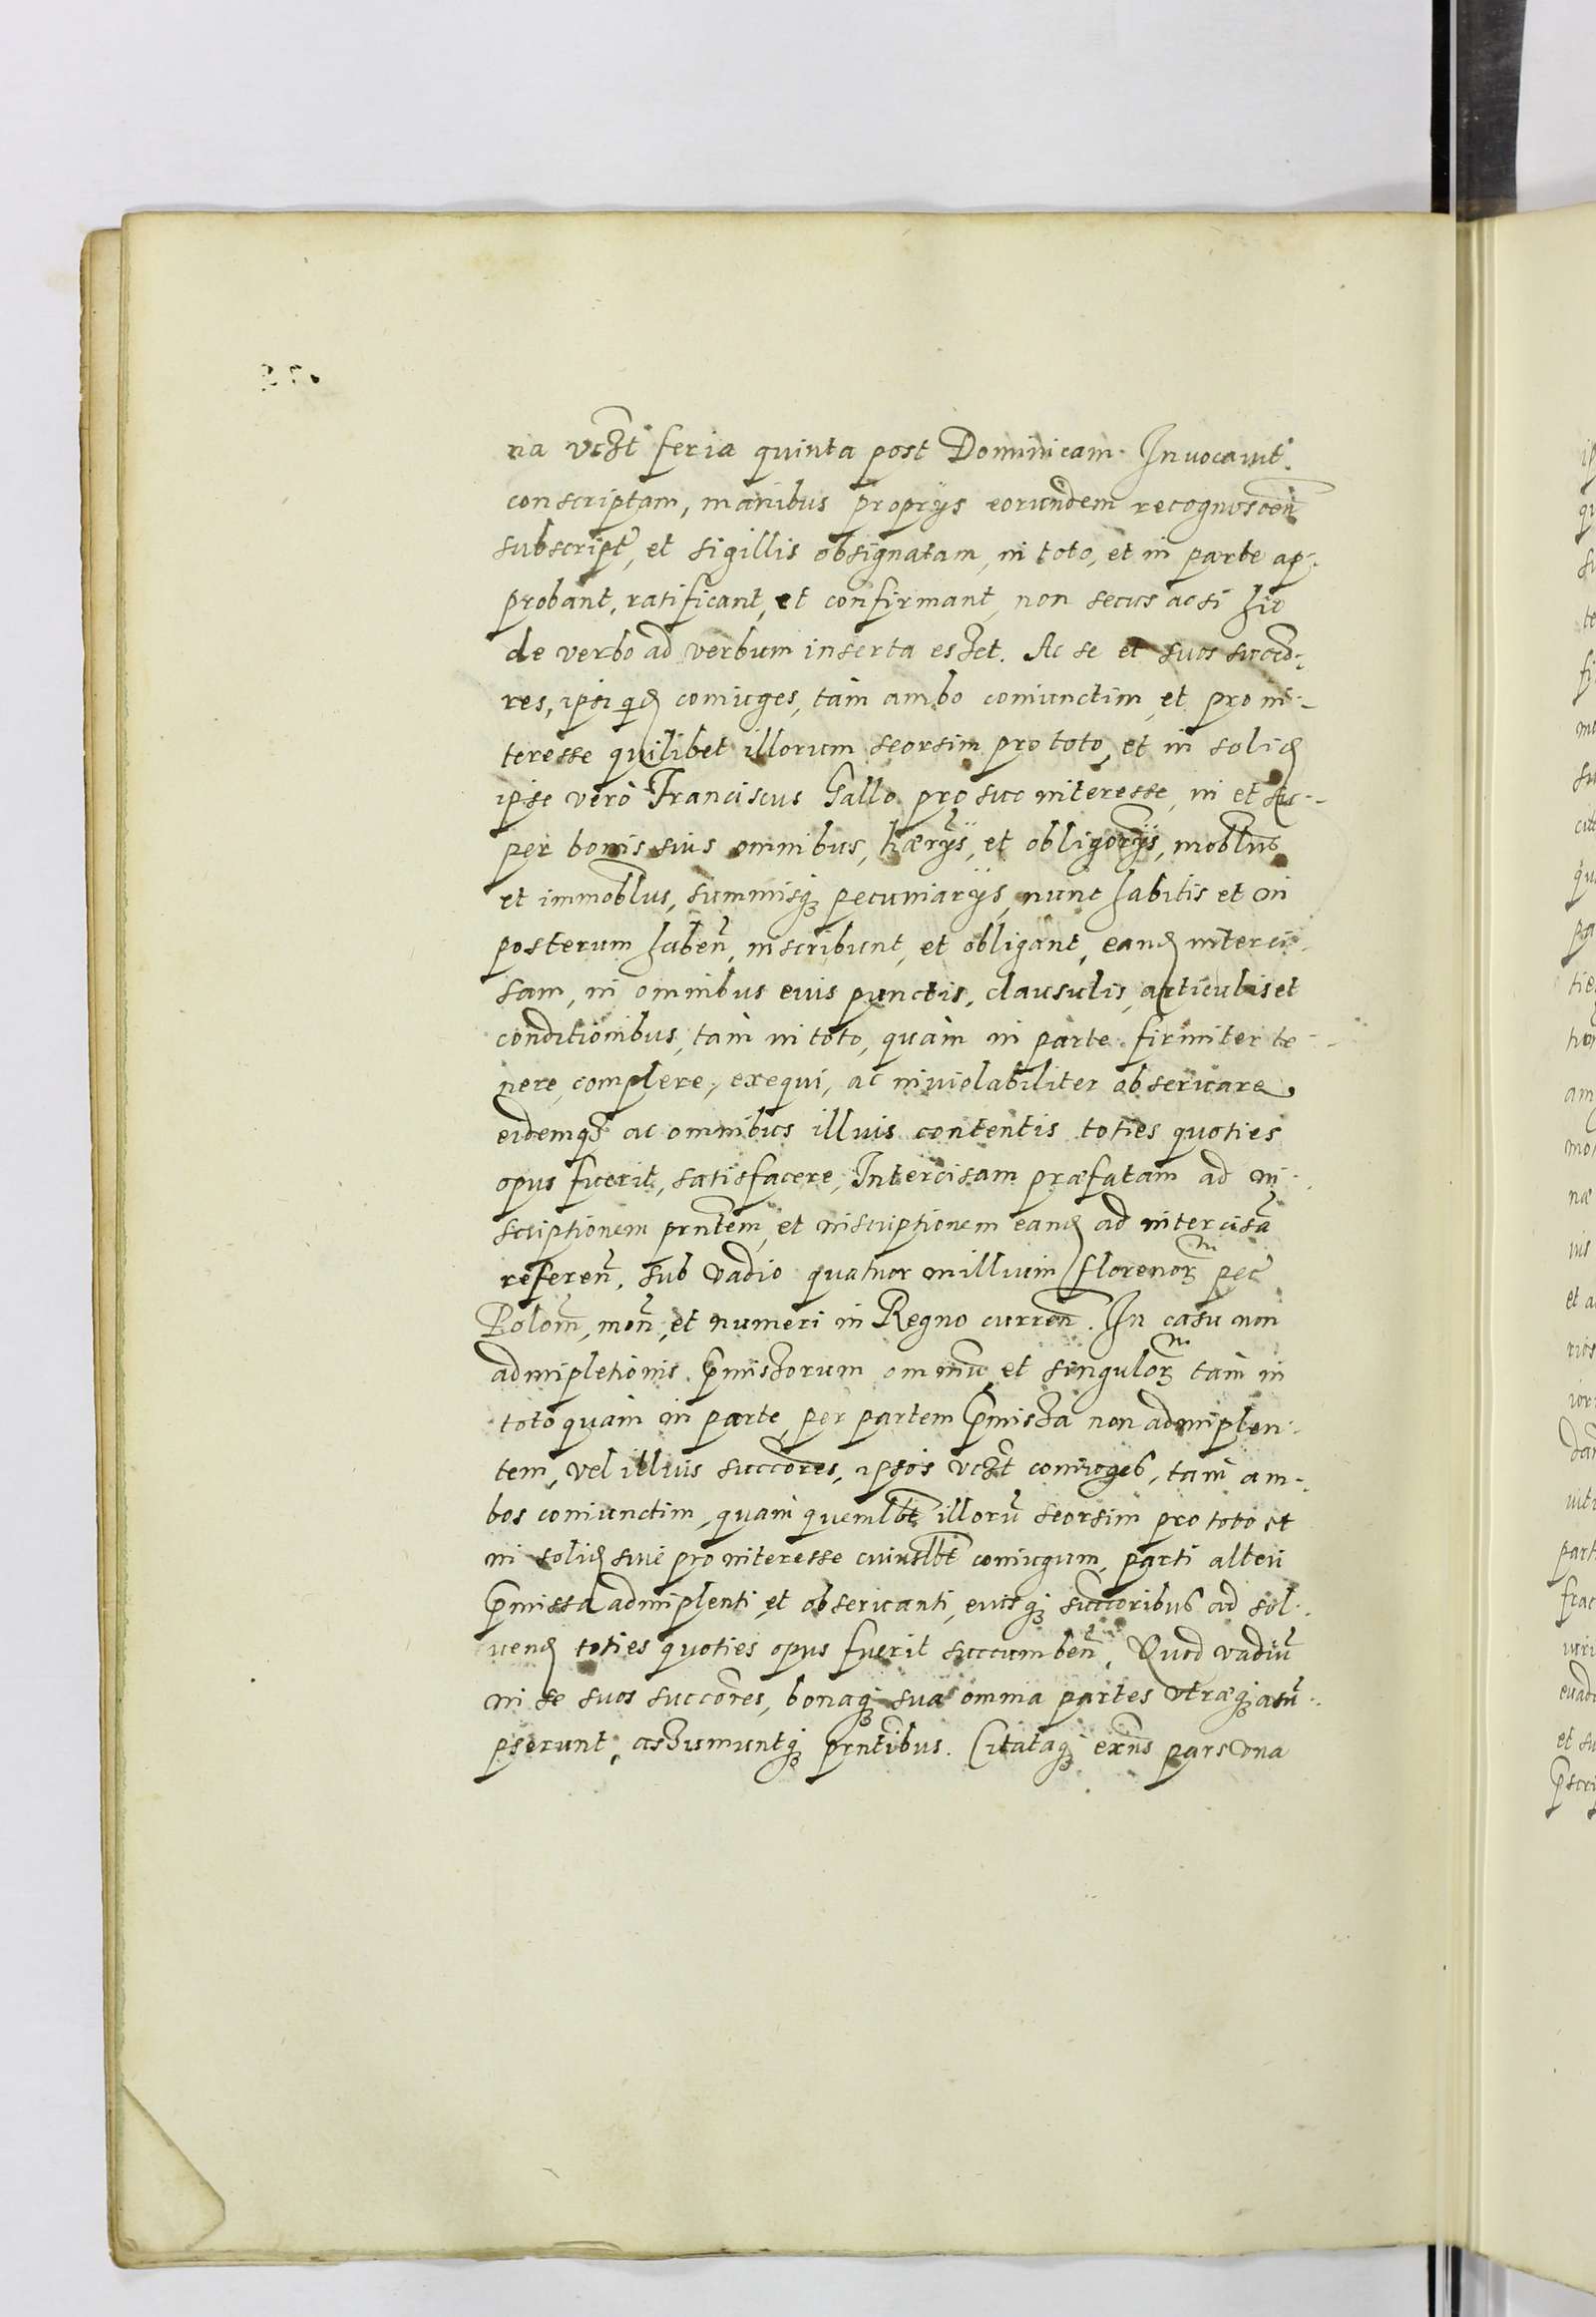 na vcзt feria quinta post Dominicam Inuocauit
conscriptam, manibus proprijs eorundem recognoscen̄
subscript̃, et sigillis obsignatam, in toto, et in parte ap-
probant, ratificant, et confirmant, non secus ac si hic
de verbo ad verbum inserta esset. Ac se et suos succo-
res, ipsi qd coniuges, tam ambo coniunctim, et pro in-
teresse quilibet illorum seorsim pro toto, et in solid
ipse vero Franciscus Gallo pro suo interesse, in et su-
per bonis suis omnibus, hærijs, et obligorijs, moblbus
et immoblbus, summisq; pecuniarijs, nunc habitis et in
posterum haben̄, inscribunt, et obligant, eand interci-
sam, in omnibus eius punctis, clausulis, articulis et
conditionibus, tam in toto, quam in parte firmiter te-
nere, complere, exequi, ac inuiolabiliter obseruare,
eidemq; ac omnibus illius contentis toties quoties
opus fuerit, satisfacere, Intercisam præfatam ad in-
scriptionem prntem, et inscriptionem eand ad intercisã
referen̄, sub vadio quatuor millium florenor̃ pec̃
Polon̄, mon̄, et numeri in Regno curren̄. In casu non
adimpletionis p̄missorum omniũ, et singulor̃ tam in
toto quam in parte, per partem p̄missa non adimplen-
tem, vel illius succores, ipsos vcзt coniuges, tam am-
bos coniunctim, quam quemlbt illorũ seorsim pro toto et
in solid siue pro interesse cuiuslbt coniugum, parti alteri
p̄missa adimplenti, et obseruanti, eiusq; succoribus ad sol-
uend toties quoties opus fuerit succumben̄, Quod vadiũ
in se suos succores, bonaq; sua omnia partes vtræq; asũ-
pserunt, assumuntq; prntibus. Citataq; exn̄s pars vna